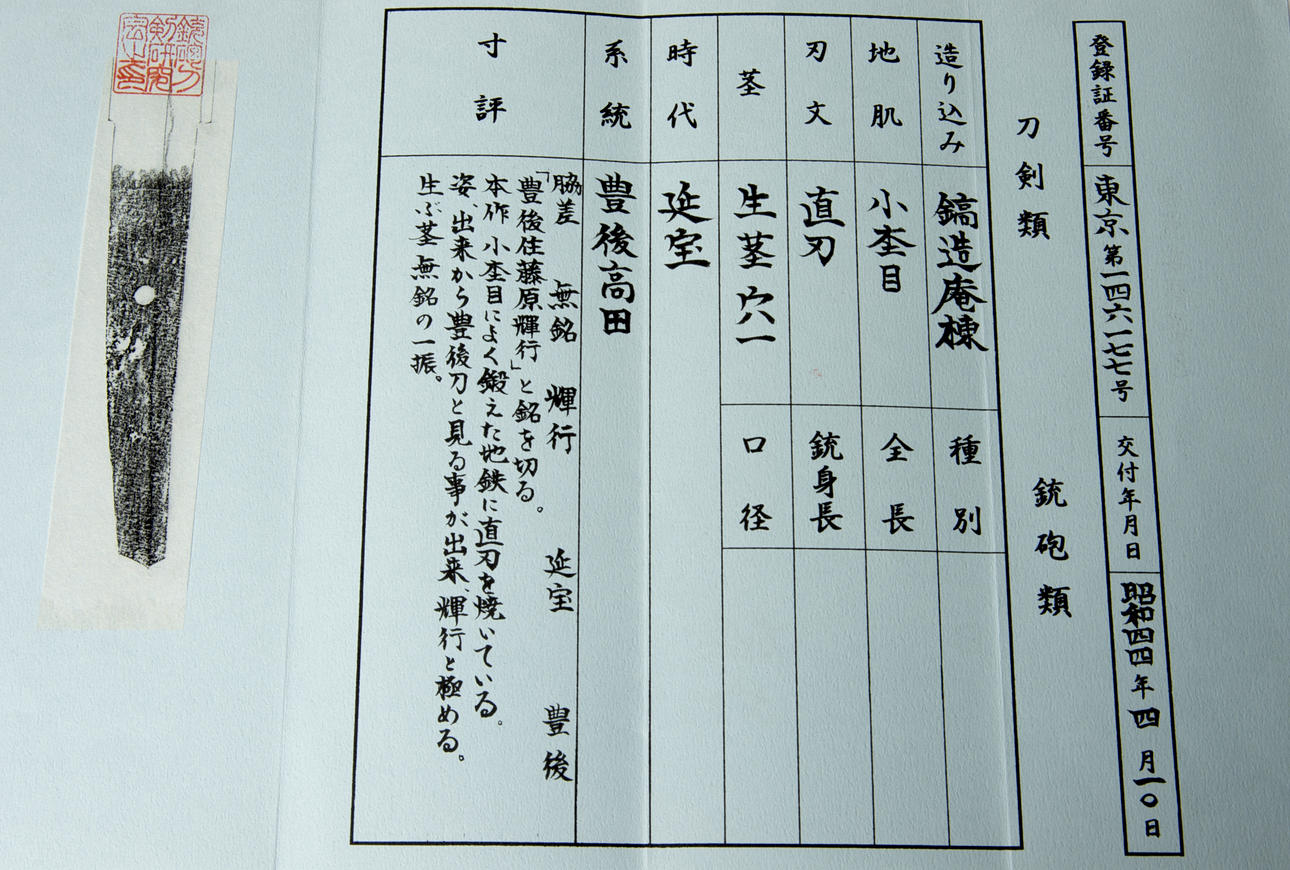 登録証番号 東京第一四六一七七号 交付年月日 昭和四四年四月一〇日
刀剣類 銃砲類
造り込み 鎬造庵棟 種別
地肌 小杢目 全長
刃文 直刃 銃身長
茎 生茎穴一 口径
時代 延宝
系統 豊後高田
寸評
脇差 無銘 輝行 延宝 豊後
「豊後住藤原輝行」と銘を切る。
本作 小杢目によく鍛えた地鉄に直刃を焼いている。
姿、出来から豊後刀と見る事が出来、輝行と極める。
生ぶ茎無銘の一振。